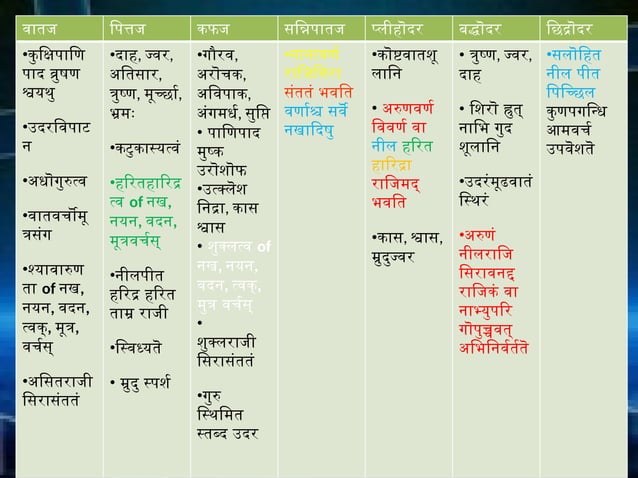 वातज
•कुक्षिपाणि
पाद व्रुषण
श्वयथु
•उदरविपाट
न
•अधॊगुरुत्व
•वातवर्चॊमू
त्रसंग
•श्यावारुण
ता of नख,
नयन, वदन,
त्वक्, मूत्र,
वर्चस्
•असितराजी
सिरासंततं
पित्तज
•दाह, ज्वर,
अतिसार,
त्रुष्ण, मूर्च्छा,
भ्रमः
•कटुकास्यत्वं
•हरितहारिद्र
त्व of नख,
नयन, वदन,
मूत्रवर्चस्
•नीलपीत
हरिद्र हरित
ताम्र राजी
•स्विध्यतॆ
• म्रुदु स्पर्श
कफज
•गौरव,
अरॊचक,
अविपाक,
अंगमर्ध, सुप्ति
• पाणिपाद
मुष्क
उरॊशॊफ
•उत्क्लॆश
निद्रा, कास
श्वास
• शुक्लत्व of
नख, नयन,
वदन, त्वक्,
मुत्र वर्चस्
•
शुक्लराजी
सिरासंततं
•गुरु
स्थिमित
स्तब्द उदर
सन्निपातज
संततं भवति
वर्णाश्च सर्वॆ
नखादिषु
प्लीहॊदर
•कॊष्टवातशू
लानि
• अरुणवर्ण
विवर्ण वा
नील हरित
हारिद्रा
राजिमद्
भवति
•कास, श्वास,
म्रुदुज्वर
बद्धॊदर
• त्रुष्ण, ज्वर,
दाह
• शिरॊ ह्रुत्
नाभि गुद
शूलानि
•उदरंमूढवातं
स्थिरं
•अरुणं
नीलराजि
सिरावनद्द
राजिकं वा
नाभ्युपरि
गॊपुच्चवत्
अभिनिर्वर्ततॆ
छिद्रॊदर
•सलॊहित
नील पीत
पिच्छिल
कुणपगन्धि
आमवर्च
उपवॆशतॆ